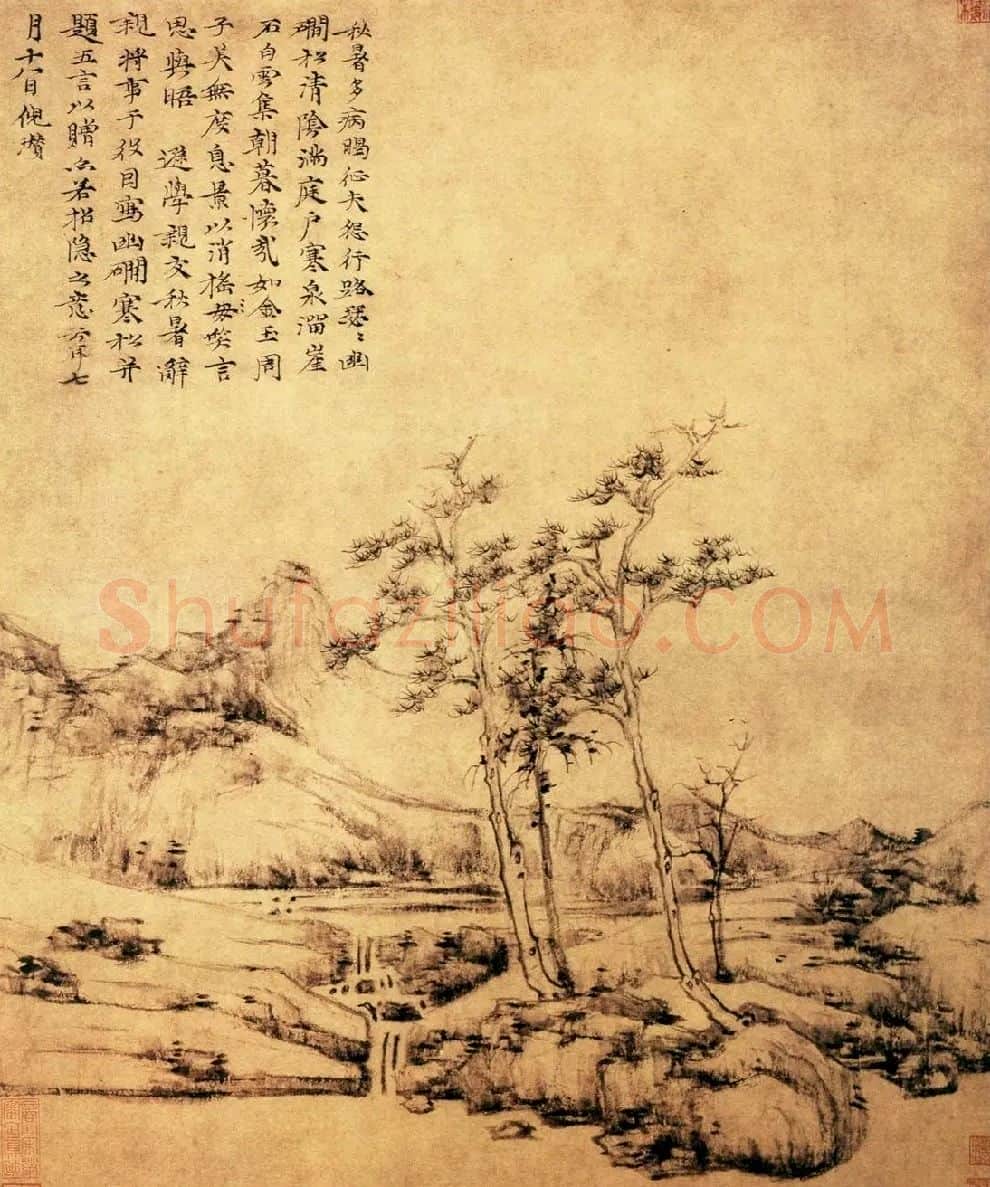 秋暑多病暍征夫怨行路瑟〻幽
磵松清陰滿庭户寒泉溜崖
石白雲集朝暮懷哉如金玉周
子美無度息景以消搖毋笑言
思與晤 遜學親友秋暑辭
親將事于役因寫幽磵寒松并
題五言以贈亦若招隱之意云耳七
月十八日倪瓚
Shufaziliao.COM